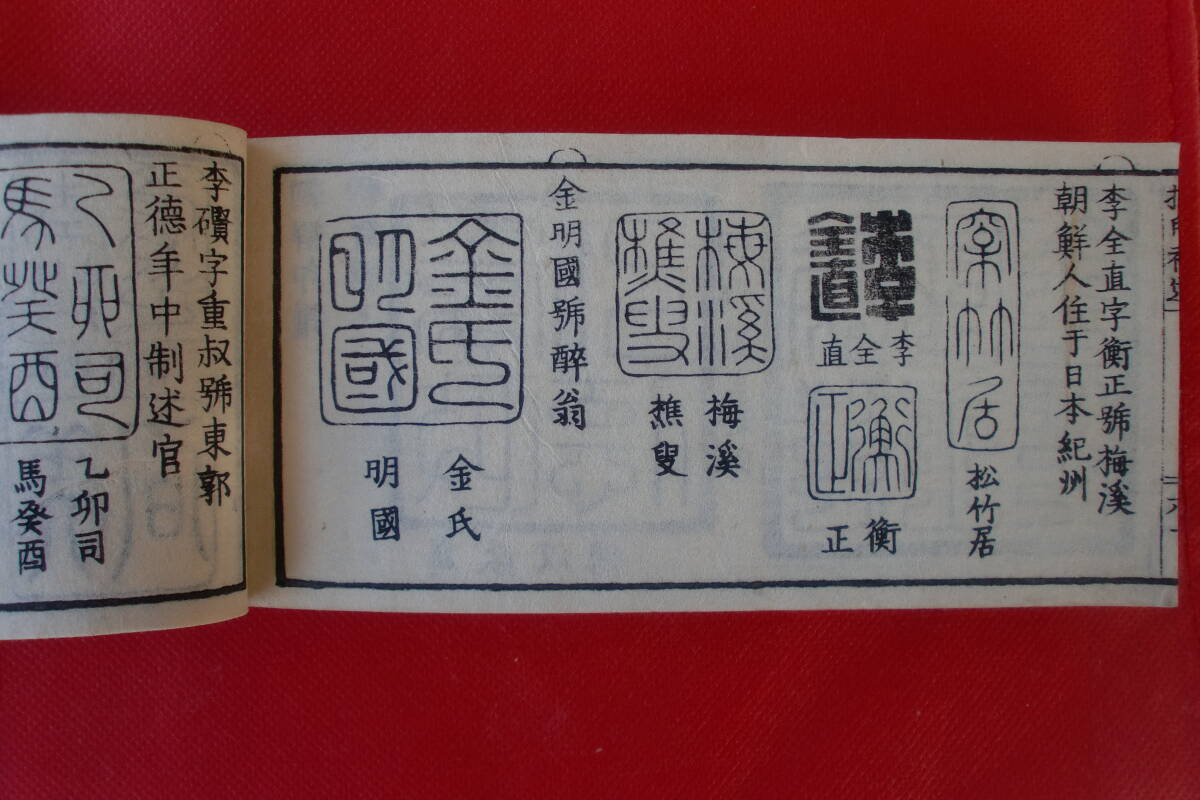 李全直字衡正號梅溪
朝鮮人住于日本紀州
松竹居
李全直
衡正
梅溪
樵叟
金明國號醉翁
金氏
明國
金氏
明國
李礥字重叔號東郭
正德年中制述官
乙卯司
馬癸酉
乙卯司
馬癸酉